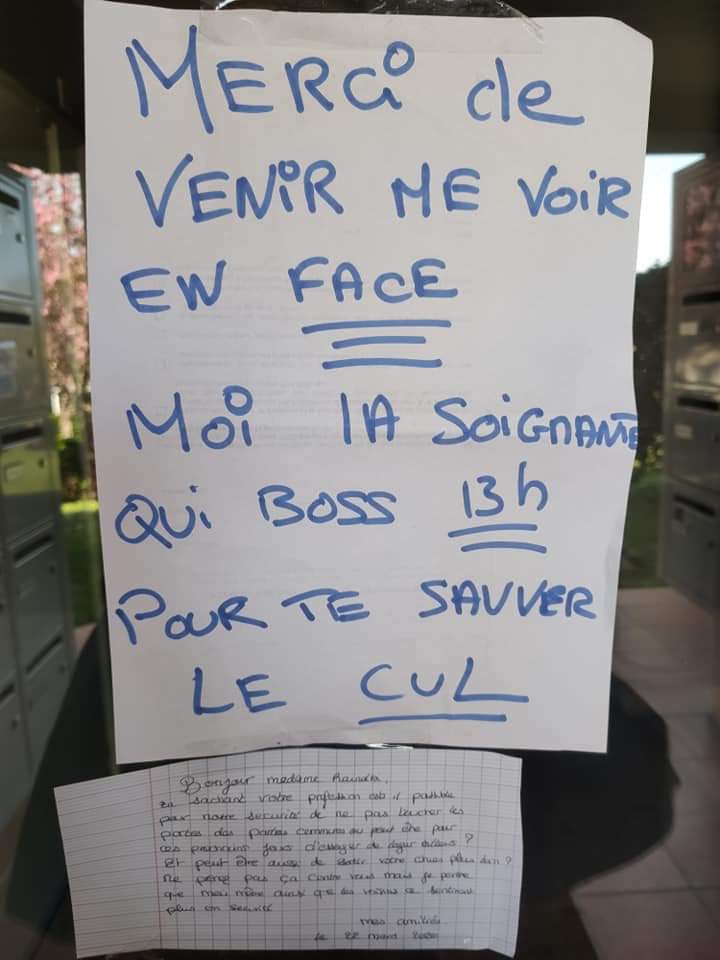 MERCi de
VENiR ME VOiR
EN FACE
Moi lA SOiGNANTE
Qui BOSS 13h
POUR TE SAUVER
LE CUL
Bonjour madame
En sachant votre profession est il possible
pour notre sécurité de ne pas toucher les
portes des parties communes ou peut être pour
ces prochains jours d'essayer de loger ailleurs ?
Et peut être aussi de sortir votre chien plus loin ?
Ne pensé pas ça contre vous mais je pense
que moi même ainsi que les voisins se
plus en sécurité
mes amitiés
le 22 mars 2020